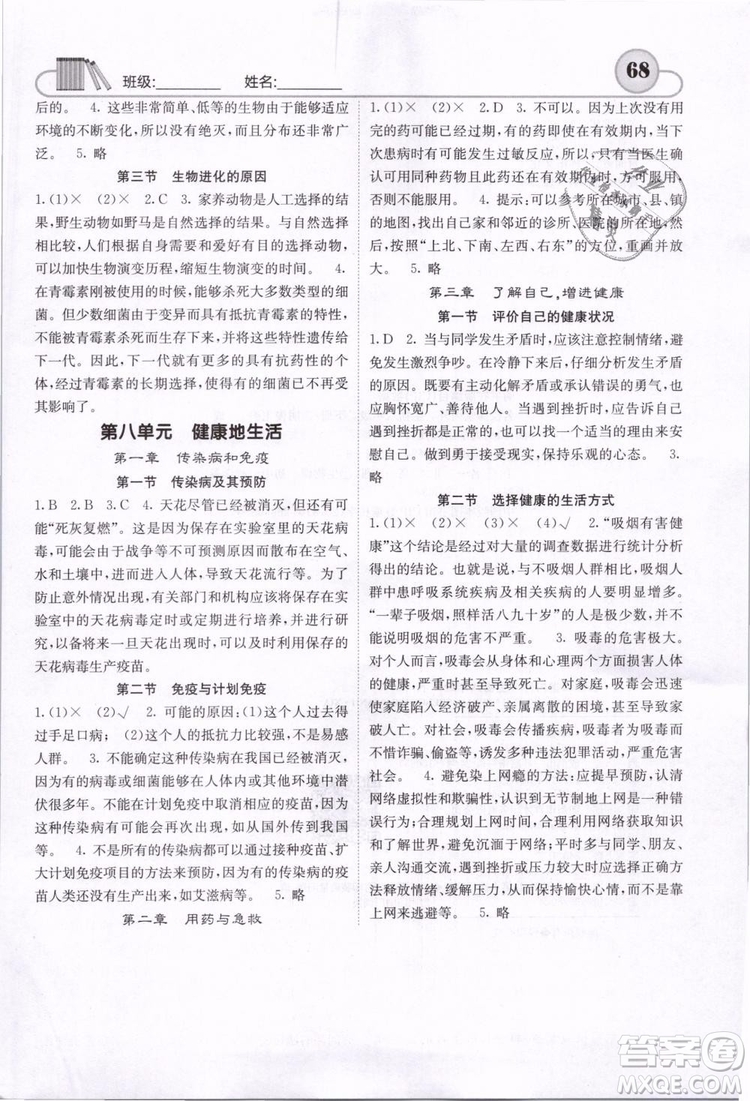 班级:________ 姓名:________
68
后的。 4. 这些非常简单、低等的生物由于能够适应
环境的不断变化，所以没有绝灭，而且分布非常广
泛。 5. 略
第三节 生物进化的原因
1. (1)× (2)× 2. C 3. 家养动物是人工选择的
结果，野生动物如野马是自然选择的结果。与自然选择
相比较，人们根据自身的需要和爱好有目的地选择动物，
可以加快生物演变历程，缩短生物演变的时间。 4.
在青霉素刚被发现的时候，能够杀死大多数类型的
细菌。但少数细菌由于变异而具有抵抗青霉素的特
性，不能被青霉素杀死而生存下来，并将这些特性遗传给
下一代。因此，下一代就有更多的具有抗药性的个体，经
过青霉素的长期选择，使得有的细菌已经不再受
其影响了。
第八单元 健康地生活
第一章 传染病和免疫
第一节 传染病及其预防
1. B 2. B 3. C 4. 天花尽管已经被消灭，但有可
能“死灰复燃”。这是因为保存在实验室里的天花病
毒，可能会由于战争等不可预测原因散布在空气、
水和土壤中，进而进入人体，导致天花流行。为了防
止意外情况出现，有关部门和机构已经将保存在实
验室中的天花病毒定时或定期集中销毁，仅保留用于研
究。除此之外，人们还可以随时利用保存的
天花病毒生产疫苗。
第二节 免疫与计划免疫
1. (1)× (2)√ 2. 可能的原因：(1)这个人以前得
过手足口病；(2)这个人的抵抗力比较强，不是易感
人群。 3. 不可以。这种传染病在我国已经被消灭，
但有的病毒或细菌能够在人体内或其他环境中潜
伏很多年。如果不在计划免疫中接种相应的疫苗，
某种疾病可能会再次出现，如从国外传到我国
等。 4. 不是所有的传染病都可以通过接种疫苗、扩
大计划免疫项目的方法来预防，因为有的传染病的疫
苗人类还没有生产出来，如艾滋病等。 5. 略
第二章 用药与急救
1. (1)× (2)× 2. D 3. 不可以。因为上次没有用
完的药可能已经过期，有的药即使没有过期，但其他
患者使用后可能发生过敏反应，只有当医生确认
所患疾病可以用同一种药物和方法治疗后，方可使用，
否则不能服用。 4. 提示：可以参考所在城市、县、镇
的地图，找出自己家和邻近的诊所、医院的位置，
然后，按照“上北、下南、左西、右东”的方位，重画并放
大。 5. 略
第三章 了解自己，增进健康
第一节 评价自己的健康状况
1. D 2. 当与同学发生矛盾时，应该注意控制情绪，避
免发生激烈争吵。在冷静下来后，仔细分析发生矛盾
的原因。既要有主动化解矛盾或承认错误的勇气，也
应胸怀宽广、善待他人、宽容他人。当遇到挫折时，
可以向家长、老师、朋友倾诉，或通过做自己喜欢的事
情来缓解。做到勇于接受挫折，保持乐观的心态。 3.
略
第二节 选择健康的生活方式
1. (1)× (2)× (3)√ 2. “吸烟有害健
康”这个结论是经过对大量的调查数据进行统计分析
得出的。在吸烟人群中，与不吸烟人群相比，吸烟人
群中患呼吸系统疾病及相关疾病的人数要多得多。
“一辈子吸烟，照样活八九十岁”的人是极少数，不能
说明吸烟的危害不严重。 3. 吸毒的危害极大。
对个人而言，吸毒会使人产生依赖性，严重影响人
的健康，甚至导致死亡。对家庭，吸毒会迅速
使家庭陷入经济破产、亲属离散的困境，甚至导
致死亡。对社会，吸毒会传播疾病，而且吸毒与
贩毒、偷盗等诸多种违法犯罪活动有关，严重危害
社会。 4. 避免染上网瘾的方法有：充分了解并清
楚网络虚拟性和欺骗性，认识到无节制地上网是一种错
误行为；合理规划上网时间，在有意义的事情上
取得成就感，避免沉溺于网络；平时多与同学、朋友、
亲人沟通交流，当遇到挫折或压力较大时，可以选择
其他方法发泄情绪、缓解压力，而不是总靠
上网来逃避等。 5. 略
答案圈
MXQE.COM